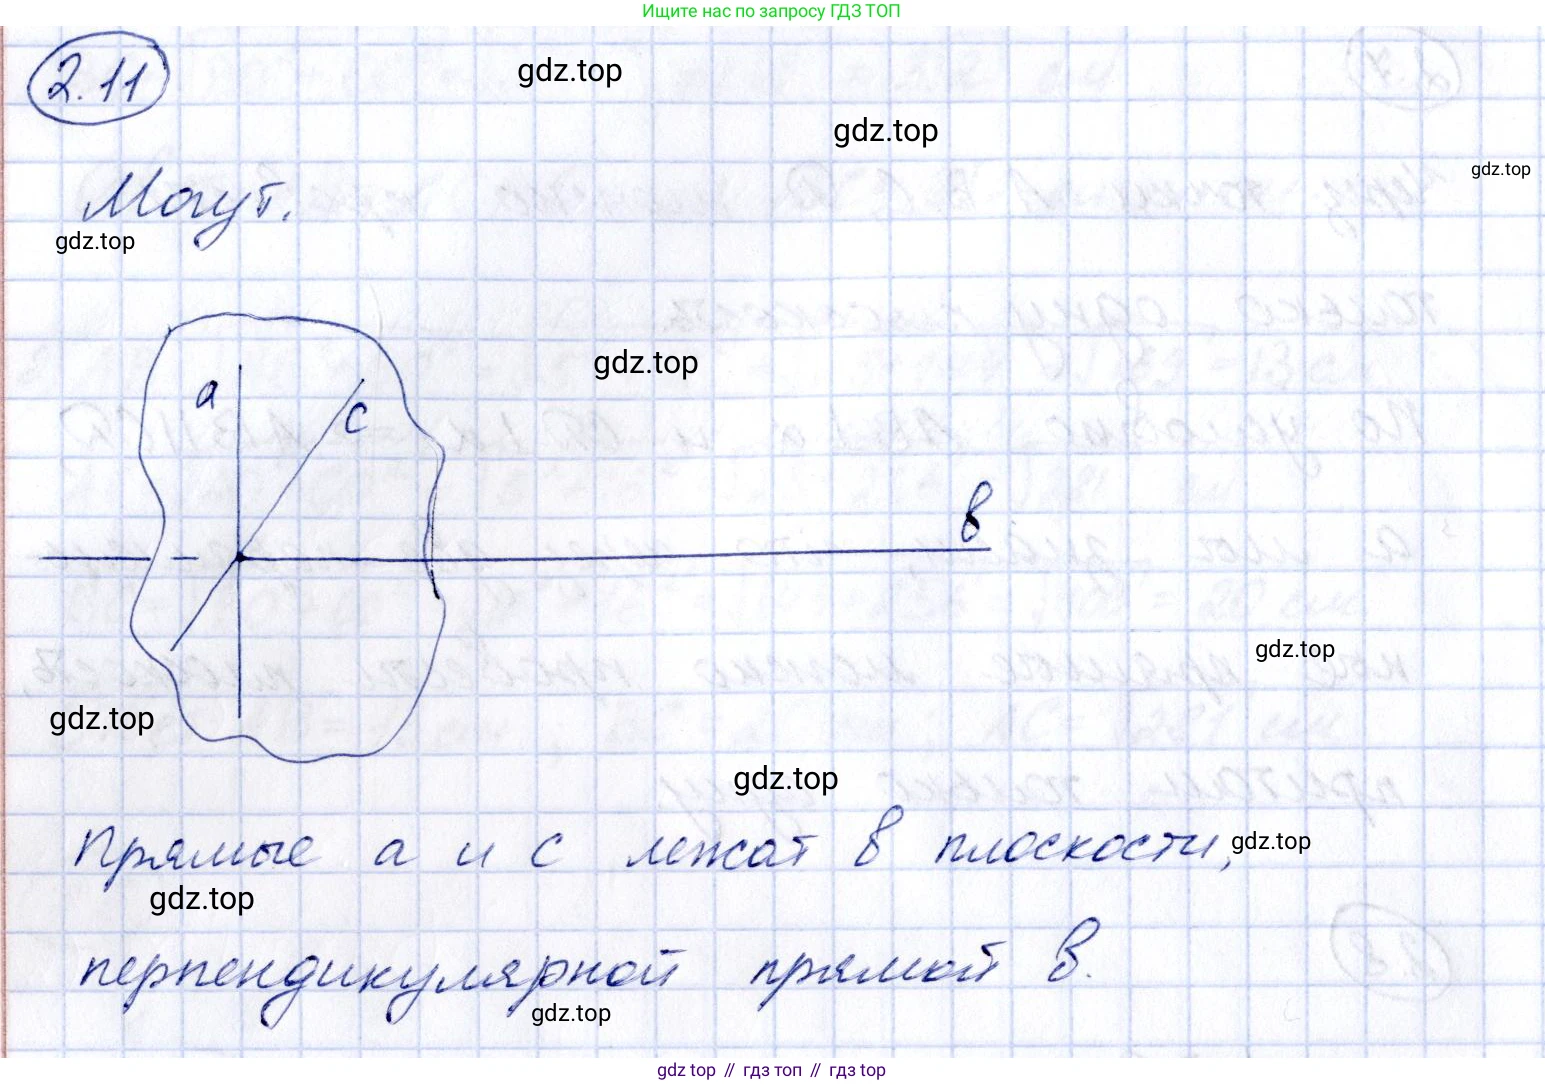 Ищите нас по запросу ГДЗ ТОП
2.11
gdz.top
gdz.top
gdz.top
Могут.
gdz.top
gdz.top
a
c
в
gdz.top
gdz.top
gdz.top
Прямые а и с лежат в плоскости,
gdz.top
gdz.top
перпендикулярной прямой в.
gdz.top
gdz top // гдз топ // гдз top